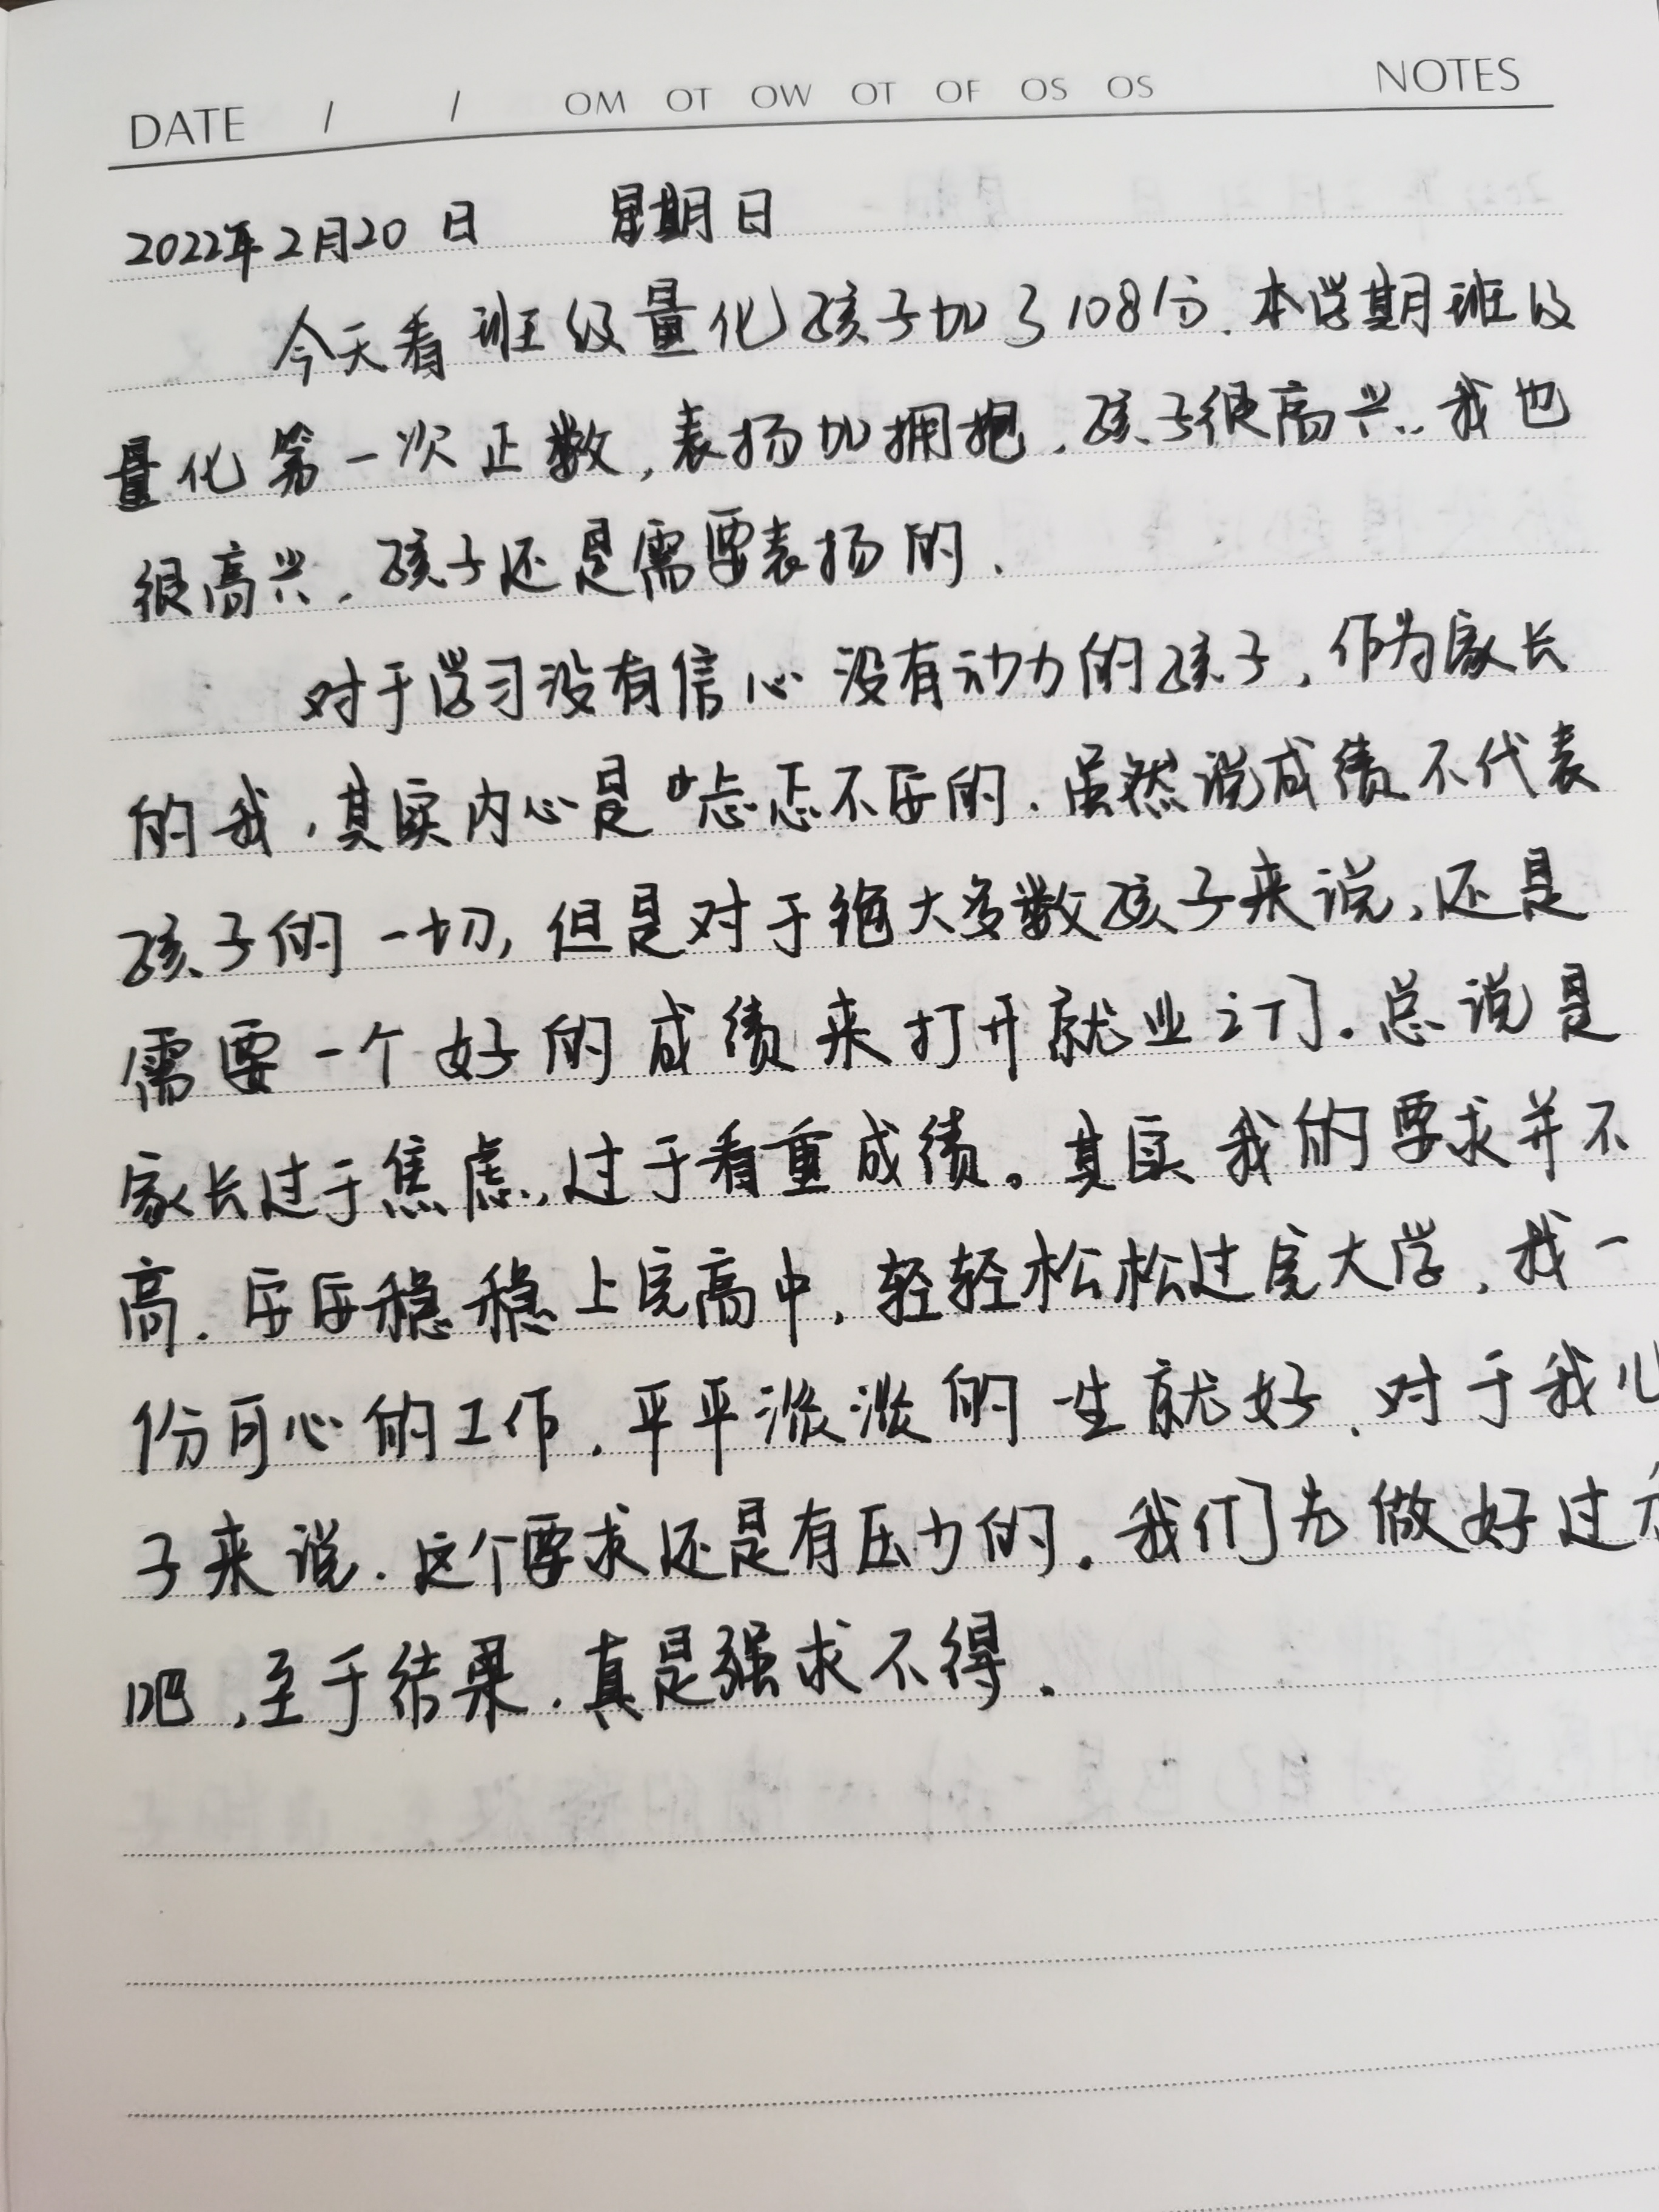 DATE / / OM OT OW OT OF OS OS NOTES
2022年2月20日 星期日
今天看班级量化孩子加了108分.本学期班级
量化第一次正数,表扬加拥抱.孩子很高兴.我也
很高兴.孩子还是需要表扬的.
对于学习没有信心没有动力的孩子,作为家长
的我,其实内心是忐忑不安的.虽然说成绩不代表
孩子的一切,但是对于绝大多数孩子来说,还是
需要一个好的成绩来打开就业之门。总说是
家长过于焦虑,过于看重成绩。其实我的要求并不
高.安安稳稳上完高中,轻轻松松过完大学,找一
份可心的工作.平平淡淡的一生就好.对于我儿
子来说.这个要求还是有压力的。我们先做好过
吧,至于结果.真是强求不得.